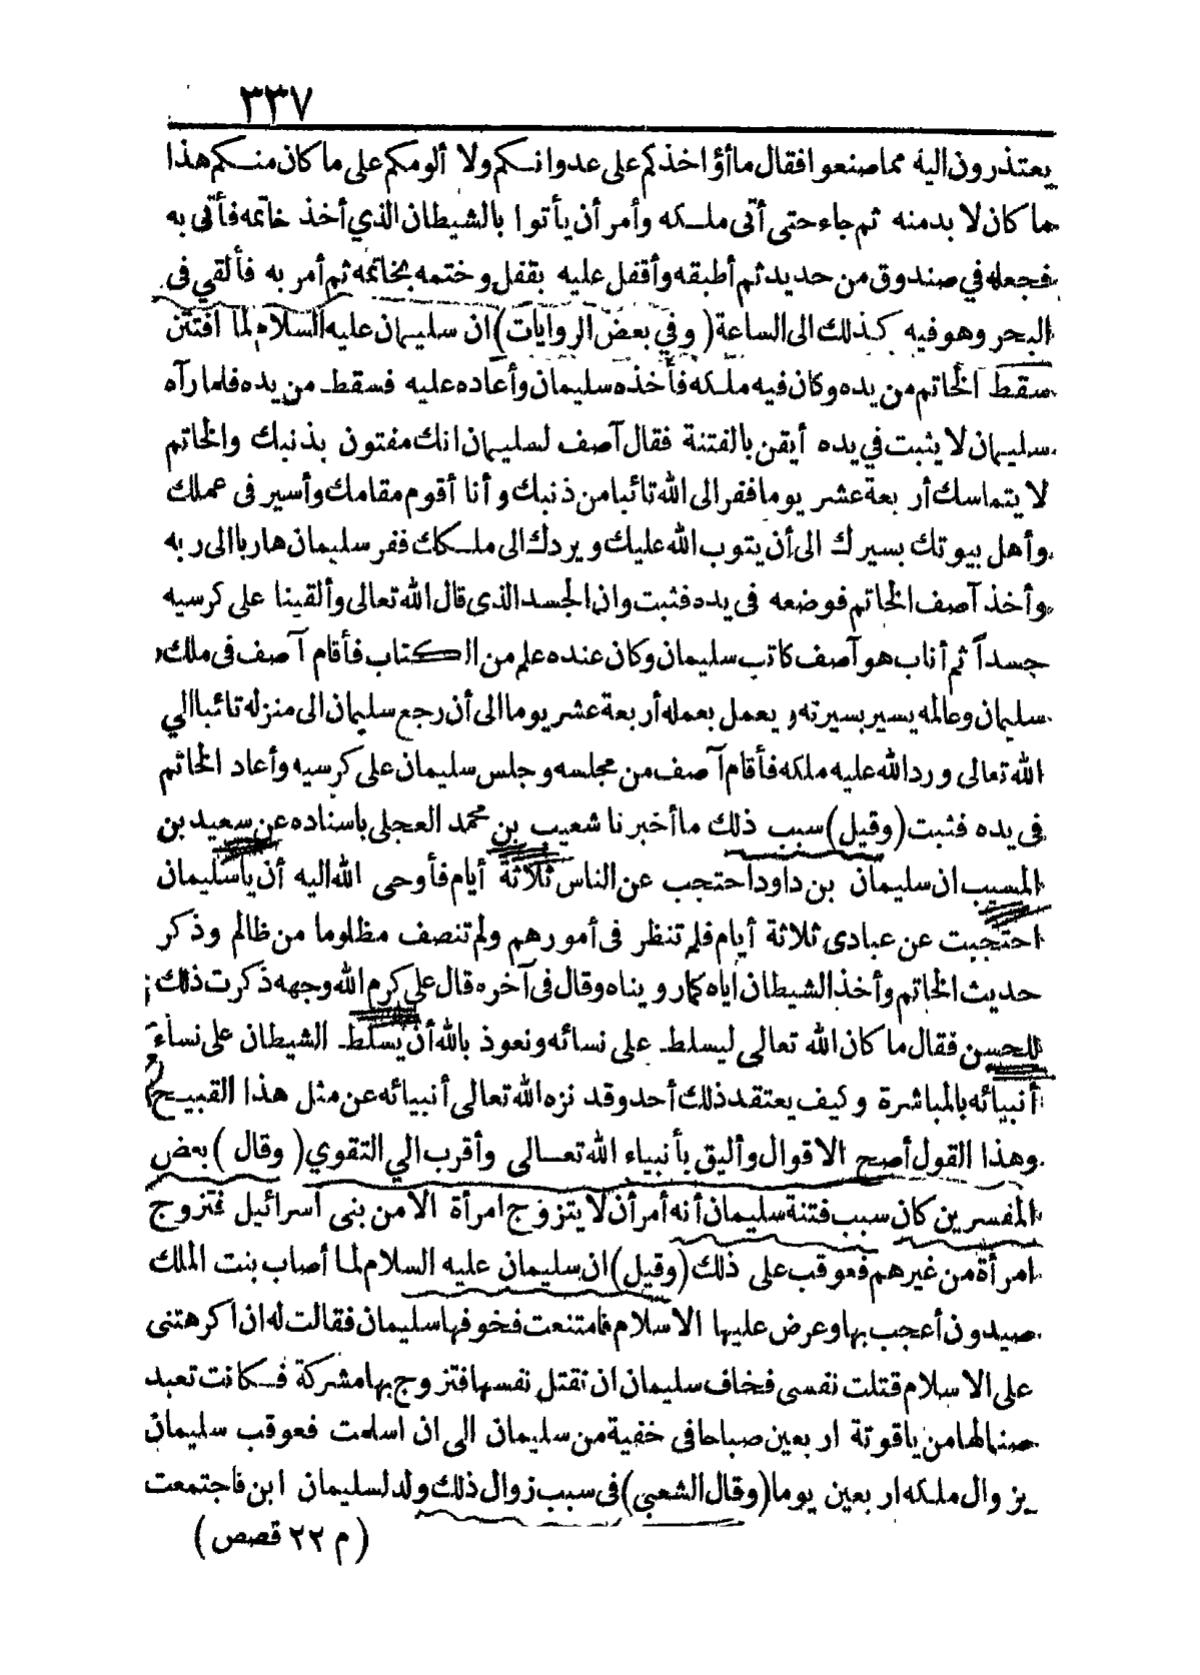 ٣٣٧
يعتذرون اليه مما صنعوا فقال ما أؤاخذكم على عدوانكم ولا ألومكم على ما كان منكم هذا
ما كان لا بد منه ثم جاء حتى أتى ملكه وأمر أن يأتوا بالشيطان الذي أخذ خاتمه فأتى به
فجعله في صندوق من حديد ثم أطبقه وأقفل عليه بقفل وختمه بخاتمه ثم أمر به فألقي في
البحر وهو فيه كذلك الى الساعة (وفي بعض الروايات) ان سليمان عليه السلام لما افتتن
سقط الخاتم من يده وكان فيه ملكه فأخذه سليمان وأعاده عليه فسقط من يده فلما رآه
سليمان لا يثبت في يده أيقن بالفتنة فقال آصف لسليمان انك مفتون بذنبك والخاتم
لا يتماسك أربعة عشر يوما ففر الى الله تائبا من ذنبك وأنا أقوم مقامك وأسير في عملك
وأهل بيوتك بسيرك الى أن يتوب الله عليك ويردك الى ملكك ففر سليمان هاربا الى ربه
وأخذ آصف الخاتم فوضعه في يده فثبت وان الجسد الذى قال الله تعالى وألقينا على كرسيه
جسداً ثم أناب هو آصف كاتب سليمان وكان عنده علم من الكتاب فأقام آصف في ملك
سليمان وعالمه يسير بسيرته ويعمل بعمله أربعة عشر يوما الى أن رجع سليمان الى منزله تائبا الي
الله تعالى ورد الله عليه ملكه فأقام آصف من مجلسه وجلس سليمان على كرسيه وأعاد الخاتم
في يده فثبت (وقيل) سبب ذلك ما أخبرنا شعيب بن محمد العجلى باسناده عن سعيد بن
المسيب ان سليمان بن داود احتجب عن الناس ثلاثة أيام فأوحى الله اليه أن يا سليمان
احتجبت عن عبادى ثلاثة أيام فلم تنظر فى أمورهم ولم تنصف مظلوما من ظالم وذكر
حديث الخاتم وأخذ الشيطان اياه كما رويناه وقال فى آخره قال علي كرم الله وجهه ذكرت ذلك
للحسن فقال ما كان الله تعالى ليسلط على نسائه ونعوذ بالله أن يسلط الشيطان على نساء
أنبيائه بالمباشرة وكيف يعتقد ذلك أحد وقد نزه الله تعالى أنبيائه عن مثل هذا القبيح
وهذا القول أصح الاقوال وأليق بأنبياء الله تعالى وأقرب الي التقوي (وقال) بعض
المفسرين كان سبب فتنة سليمان أنه أمر أن لا يتزوج امرأة الا من بنى اسرائيل فتزوج
امرأة من غيرهم فعوقب على ذلك (وقيل) ان سليمان عليه السلام لما أصاب بنت الملك
صيدون أعجب بها وعرض عليها الاسلام فامتنعت فخوفها سليمان فقالت له ان اكرهتنى
على الاسلام قتلت نفسى فخاف سليمان ان تقتل نفسها فتزوج بها مشركة فكانت تعبد
صنما لها من ياقوتة اربعين صباحا فى خفية من سليمان الى ان اسلمت فعوقب سليمان
بزوال ملكه اربعين يوما (وقال الشعبي) فى سبب زوال ذلك ولد لسليمان ابن فاجتمعت
(م ٢٢ قصص)